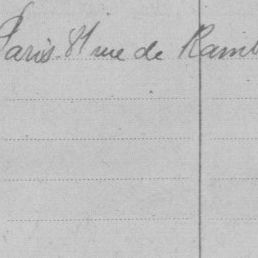 Paris. 81 rue de Ramb